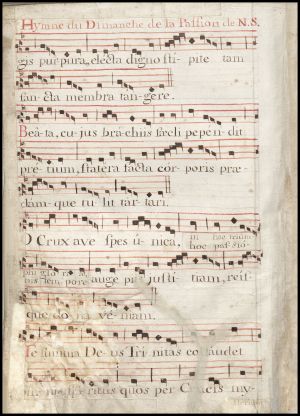 Hymne du Dimanche de la Passion de N.S.
gis purpura, electa digno sti- pite tam
san- cta membra tan- gere.
Beá- ta, cu- jus brá- chiis sæcli pepen- dit
pre- tium, statera facta cór- poris præ-
dám- que tu- lit tar- tari.
O Crux ave spes ú- nica,
hoc pas- sio-
nis tem- pore auge pi- is justi- tiam, reis-
que do- na ve- niam.
Te summa De- us Tri- nitas collaudet
om- nis spi- ritus quos per Crucis my-